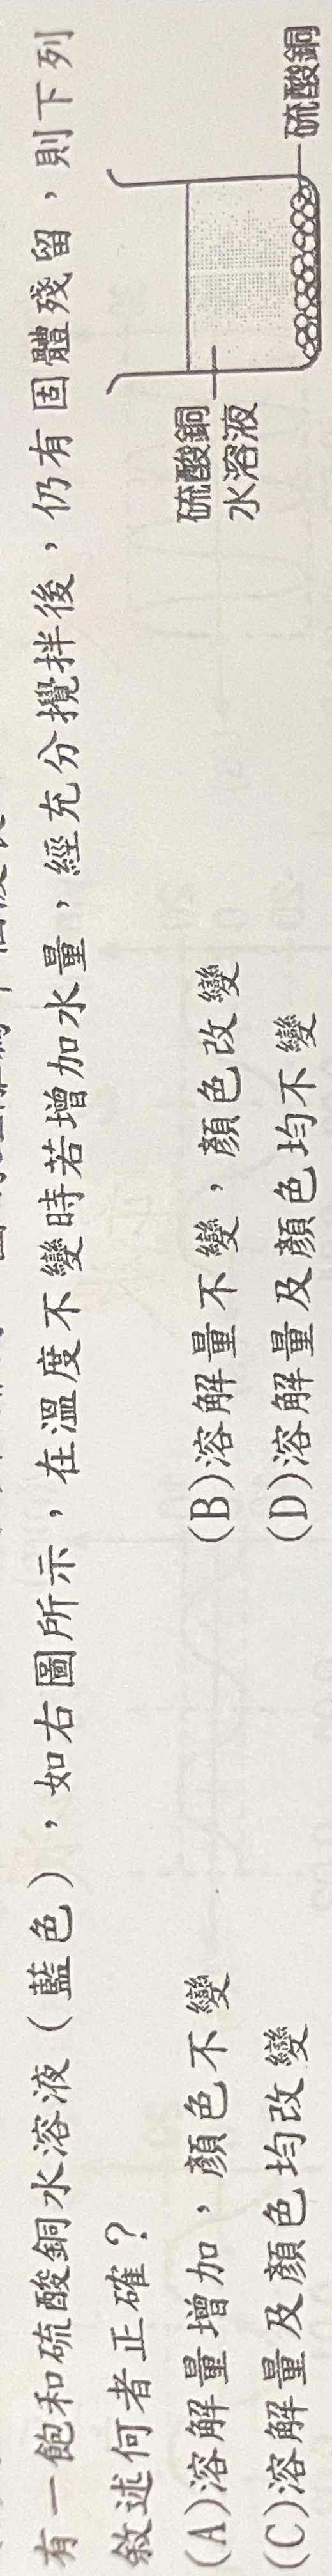 有一飽和硫酸銅水溶液（藍色），如右圖所示，在溫度不變時若增加水量，經充分攪拌後，仍有固體殘留，則下列
敘述何者正確？
(A)溶解量增加，顏色不變
(B)溶解量不變，顏色改變
(C)溶解量及顏色均改變
(D)溶解量及顏色均不變
硫酸銅
水溶液
硫酸銅